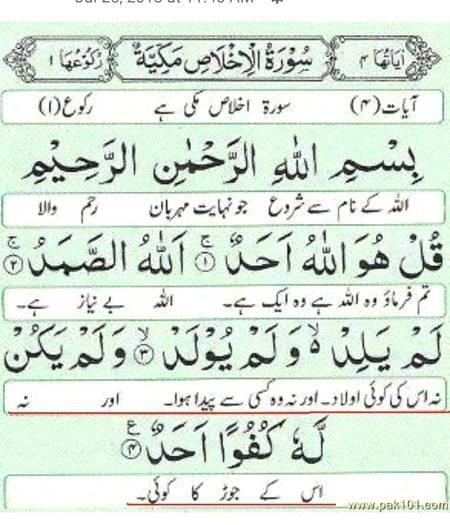 Jul 28, 2018 at 11:40 AM
اٰیَاتُهَا ۴ سُوْرَةُ الْاِخْلَاصِ مَكِّيَّةٌ رُكُوْعُهَا ۱
آیات(۴) سورۃ اخلاص مکی ہے رکوع(۱)
بِسْمِ اللهِ الرَّحْمٰنِ الرَّحِيْمِ
اللہ کے نام سے شروع جو نہایت مہربان رحم والا
قُلْ هُوَ اللهُ اَحَدٌ ۚ﴿۱﴾ اَللهُ الصَّمَدُ ۚ﴿۲﴾
تم فرماؤ وہ اللہ ہے وہ ایک ہے۔ اللہ بے نیاز ہے۔
لَمْ يَلِدْ ۙ۬ وَلَمْ يُوْلَدْ ۙ﴿۳﴾ وَلَمْ يَكُنْ
نہ اس کی کوئی اولاد۔ اور نہ وہ کسی سے پیدا ہوا۔ اور نہ
لَّهٗ كُفُوًا اَحَدٌ ﴿۴﴾ ع
اس کے جوڑ کا کوئی۔
www.pak101.com